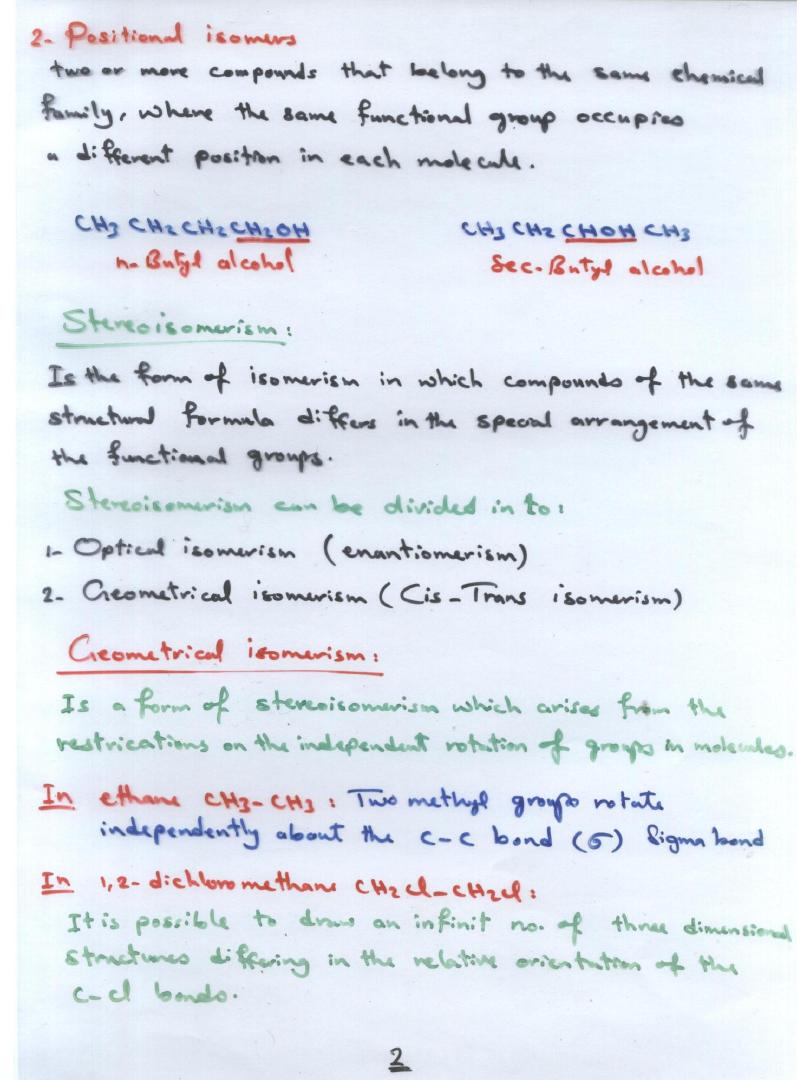 2- Positional isomers
two or more compounds that belong to the same chemical
family, where the same functional group occupies
a different position in each molecule.
CH3 CH2 CH2 CH2OH CH3 CH2 CHOH CH3
n-Butyl alcohol Sec-Butyl alcohol
Stereoisomerism:
Is the form of isomerism in which compounds of the same
structural formula differs in the special arrangement of
the functional groups.
Stereoisomerism can be divided in to:
1- Optical isomerism (enantiomerism)
2- Geometrical isomerism (Cis-Trans isomerism)
Geometrical isomerism:
Is a form of stereoisomerism which arises from the
restrications on the independent rotation of groups in molecules.
In ethane CH3-CH3: Two methyl groups rotate
independently about the C-C bond (σ) Sigma bond
In 1,2-dichloromethane CH2Cl-CH2Cl:
It is possible to draw an infinit no. of three dimensional
structures differing in the relative orientation of the
C-Cl bonds.
2